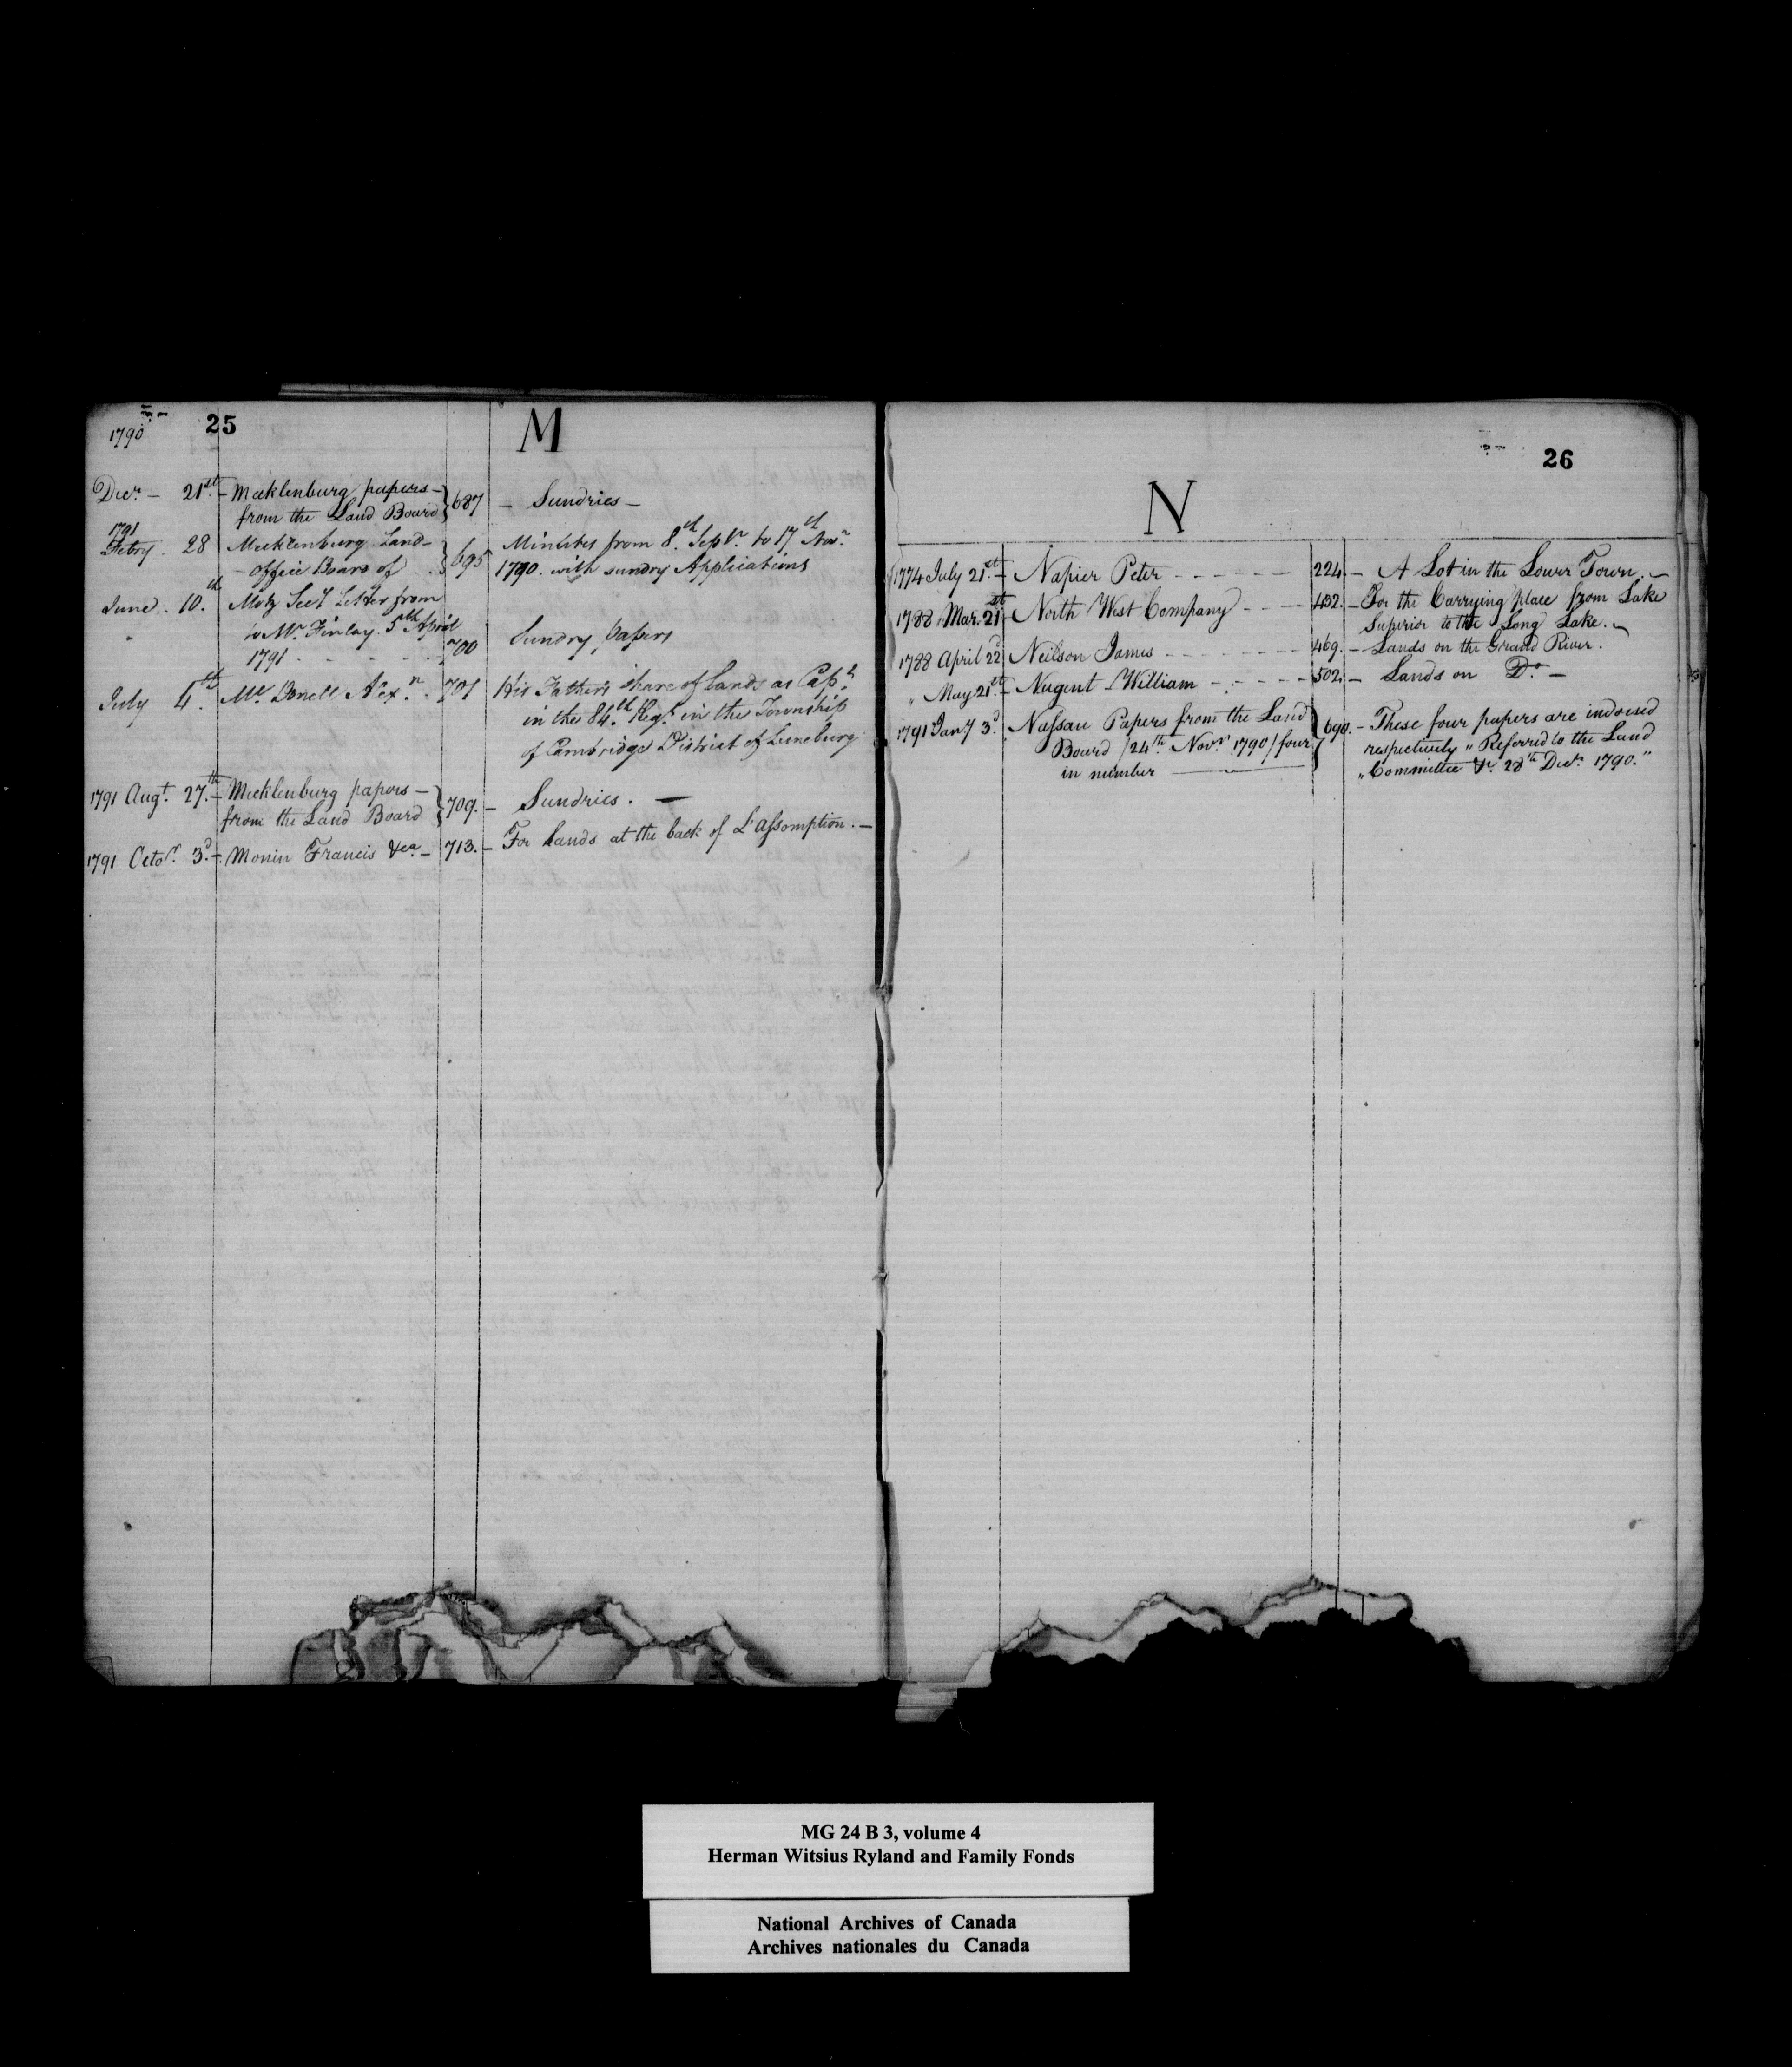 25
M
1790
Decr. - 21st. - Mecklenburg papers -
from the Land Board } 687 - Sundries -
1791
Febry. 28 Mecklenburg Land-
office Board of } 695 Minutes from 8th. Septr. to 17th Novr.
1790. with sundry Applications
June. 10th. Motz Secy Letter from
to Mr. Finlay. 5th April
1791 - - - - 700 Sundry papers
July 4th. Mc. Donell Alexn. 701 His Father's share of lands as Capt.
in the 84th. Regt. in the Township
of Cambridge District of Luneburg
1791 Augt. 27th. - Mecklenburg papers -
from the Land Board } 709. - Sundries. -
1791 Octor. 3d. - Monin Francis &ca - 713. - For Lands at the back of L'Assomption. -
26
N
1774 July 21st. - Napier Peter - - - - - - 224 - A Lot in the Lower Town. -
1788 Mar. 21st North West Company - - - 432. - For the Carrying place from Lake
Superior to the Long Lake. -
1788 April 22d Neilson James - - - - - - 469. - Lands on the Grand River.
" May 21st. - Nugent William - - - - - 502 - Lands on Do. -
1791 Jany 3d. Nassau Papers from the Land
Board / 24th. Novr. 1790 / four
in number } 690. - These four papers are indorsed
respectively " Referred to the Land
" Committee &c. 28th Decr. 1790."
MG 24 B 3, volume 4
Herman Witsius Ryland and Family Fonds
National Archives of Canada
Archives nationales du Canada